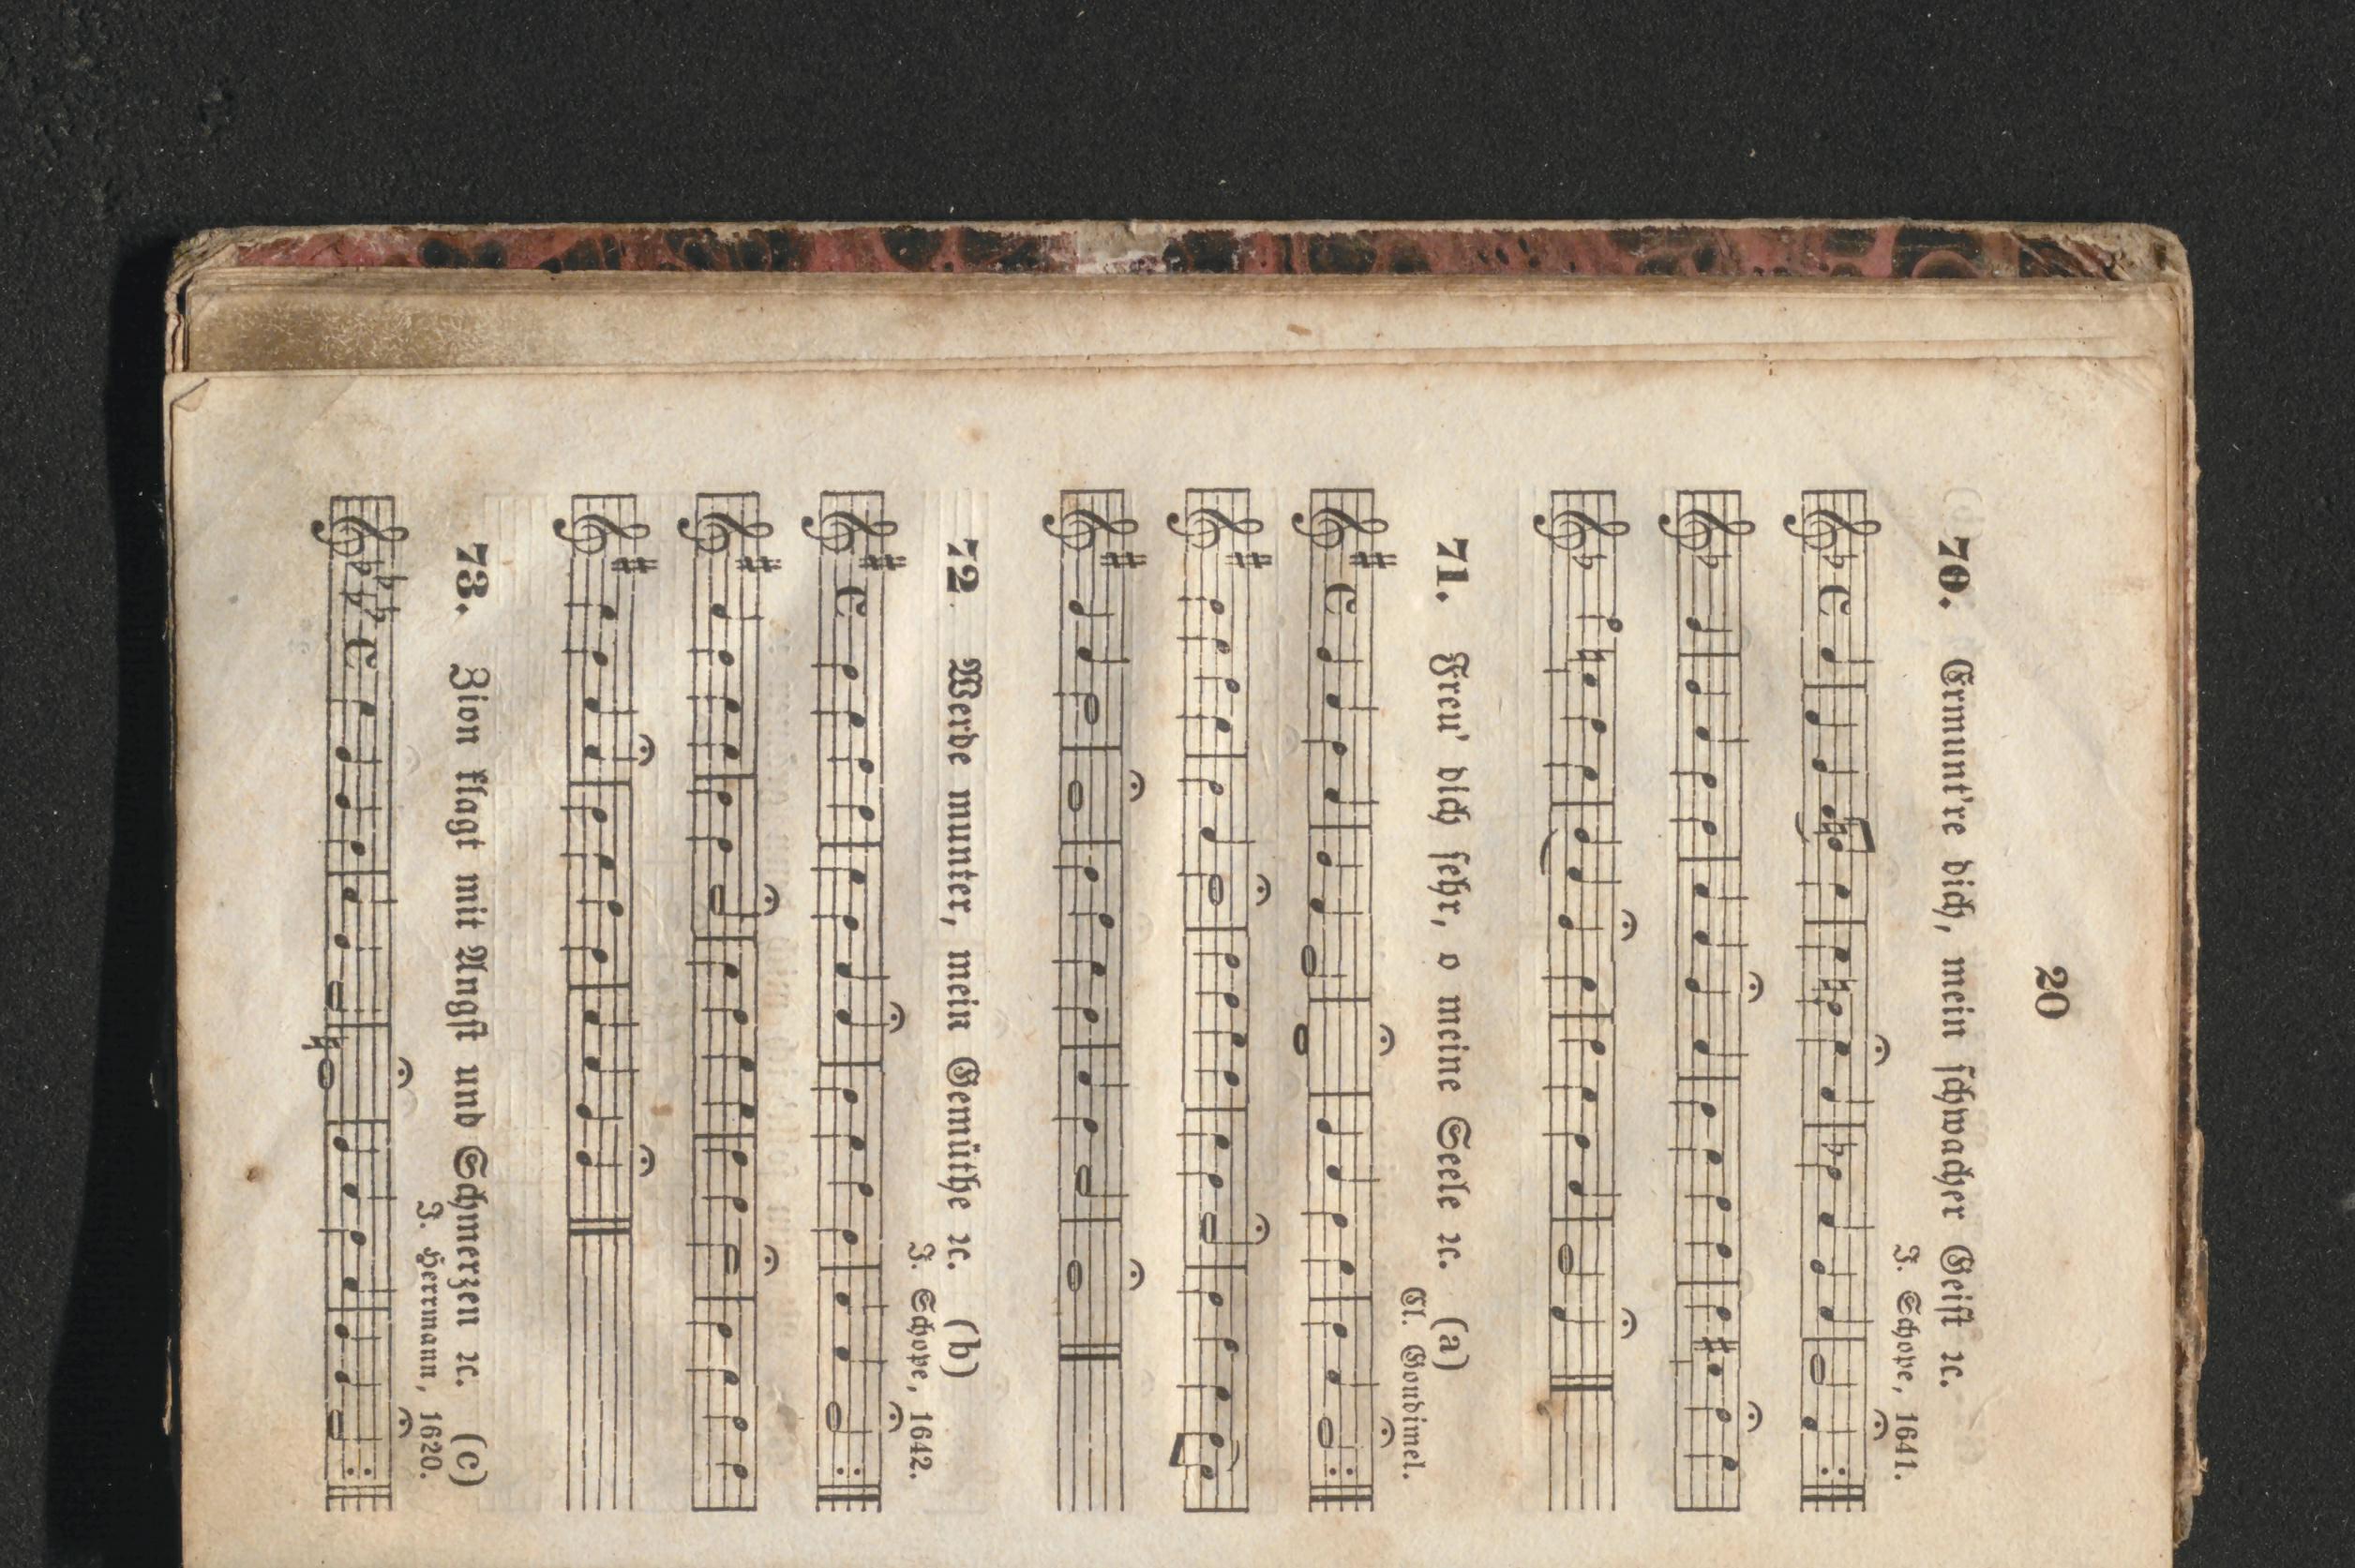 20
70. Ermunt're dich, mein schwacher Geist ꝛc.
J. Schope, 1641.
71. Freu' dich sehr, o meine Seele ꝛc. (a)
Cl. Goudimel.
72. Werde munter, mein Gemüthe ꝛc. (b)
J. Schope, 1642.
73. Zion klagt mit Angst und Schmerzen ꝛc. (c)
J. Herrmann, 1620.